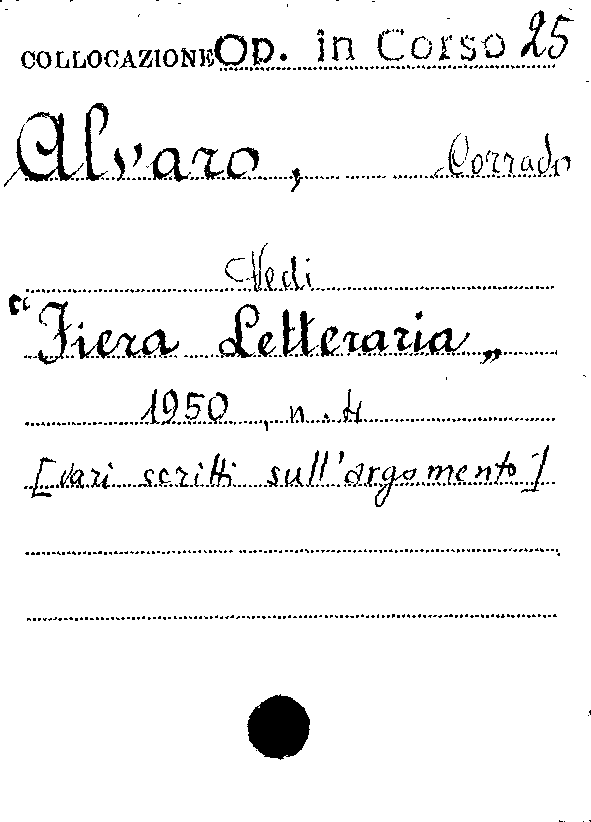 COLLOCAZIONE Op. in Corso 25
Alvaro, Corrado
Vedi
“Fiera Letteraria„
1950, n. 4
[vari scritti sull'argomento]